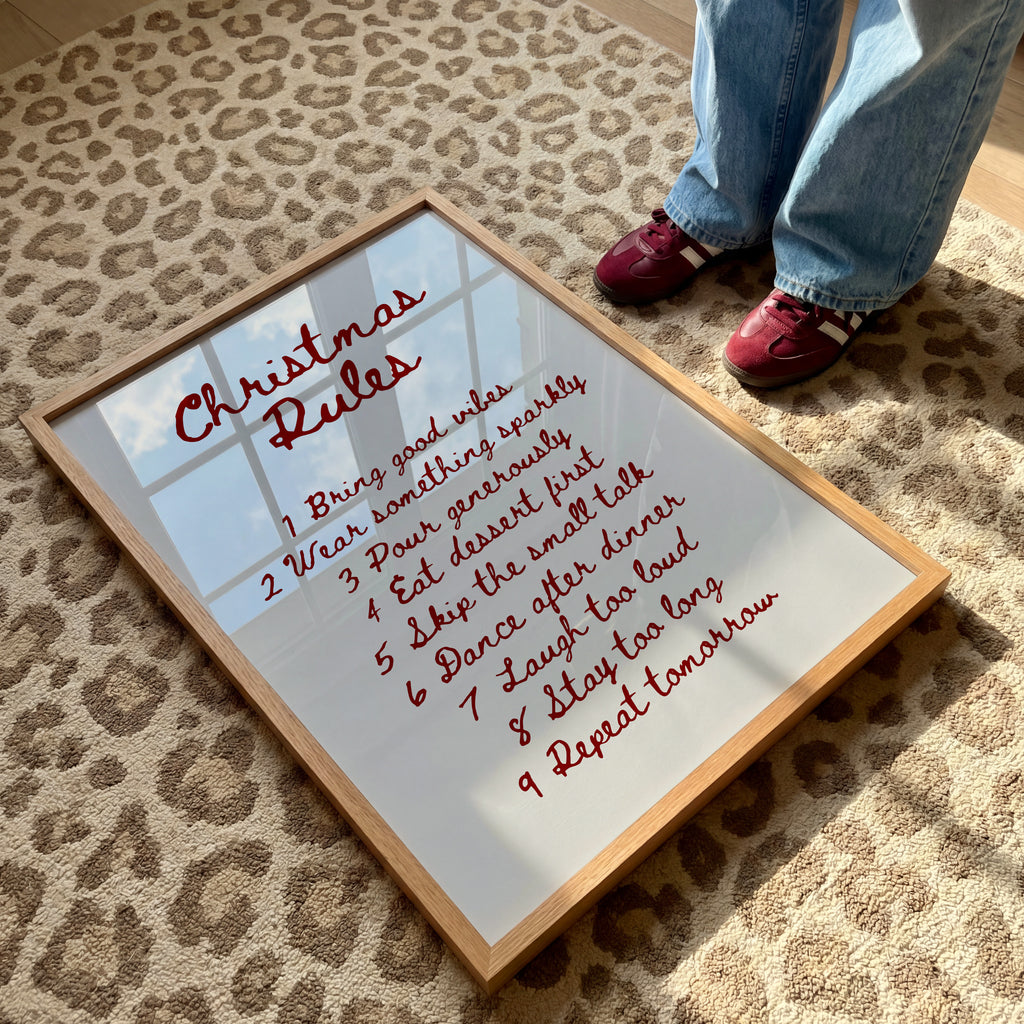 Christmas
Rules
1 Bring good vibes
2 Wear something sparkly
3 Pour generously
4 Eat dessert first
5 Skip the small talk
6 Dance after dinner
7 Laugh too loud
8 Stay too long
9 Repeat tomorrow